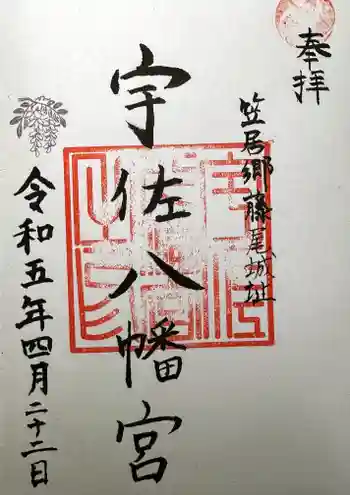 奉拝
笠居郷藤尾城址
宇佐八幡宮
令和五年四月二十二日